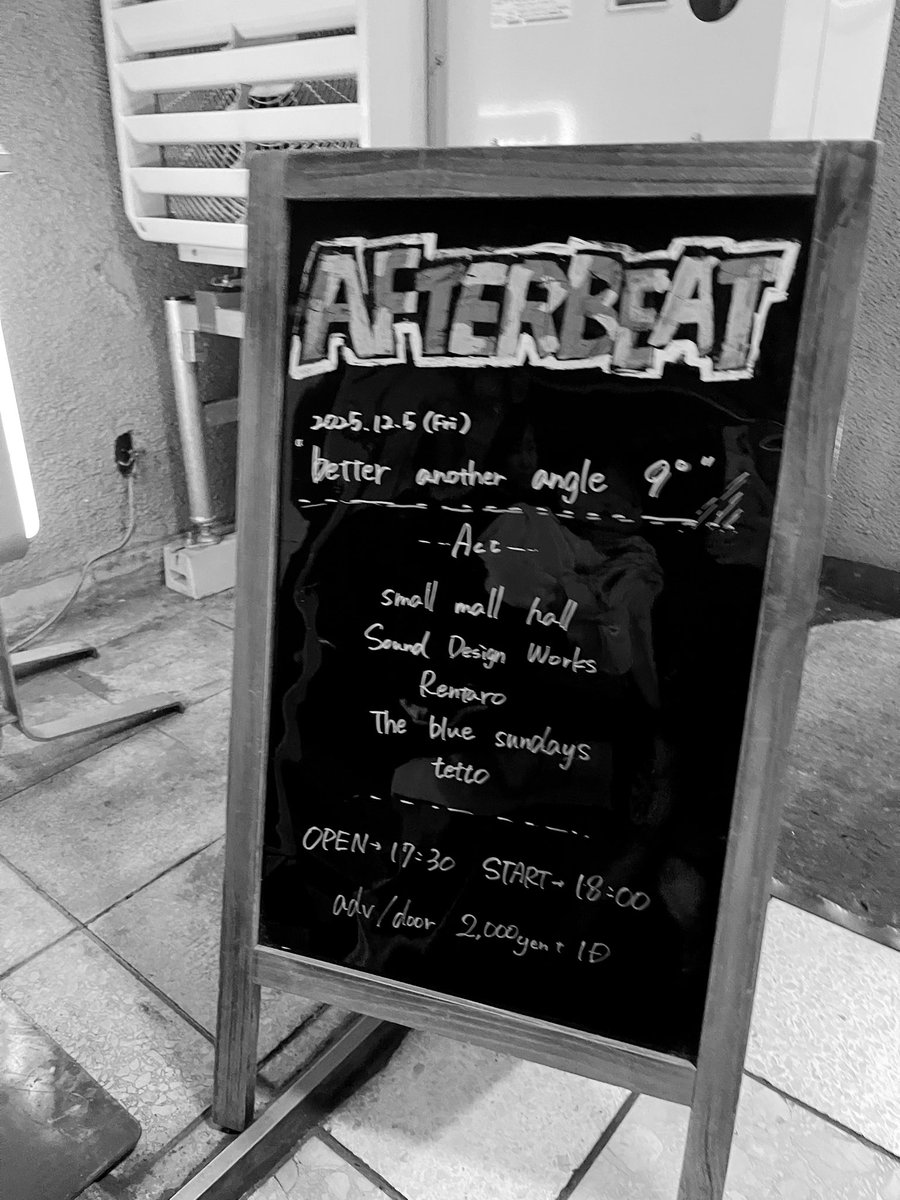 AFTERBEAT
2025.12.5 (Fri)
"better another angle 9°"
--Act--
small mall hall
Sound Design Works
Rentaro
The blue sundays
tetto
OPEN→17:30 START→18:00
adv/door 2,000yen+1D